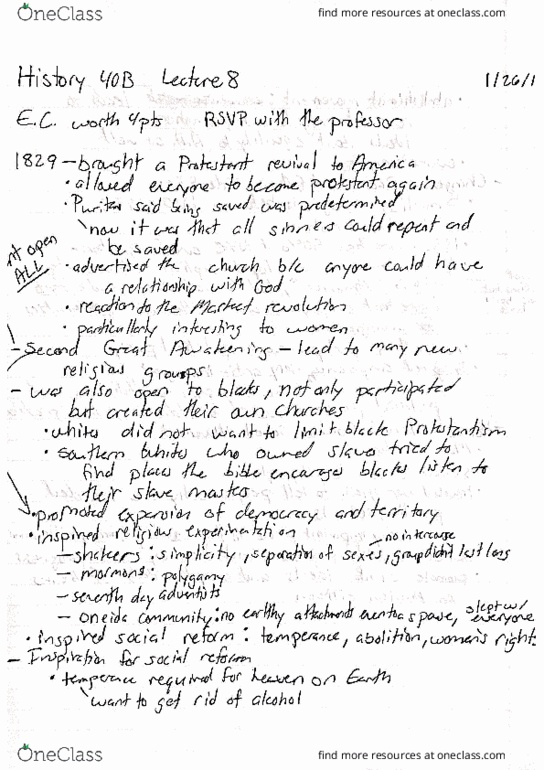 OneClass
find more resources at oneclass.com
History 40B Lecture 8 1/26/1
E.C. worth 4pts RSVP with the professor
1829 - brought a Protestant revival to America
• allowed everyone to become protestant again
• Puritan said being saved was predetermined
now it was that all sinners could repent and
be saved
open
ALL
• advertised the church b/c anyone could have
a relationship with God
• reaction to the Market revolution
• particularly interesting to women
- Second Great Awakening - lead to many new
religious groups
- was also open to blacks, not only participated
but created their own churches
• whites did not want to limit black Protestantism
• Southern whites who owned slaves tried to
find places the bible encourages blacks listen to
their slave masters
• promoted expansion of democracy and territory
• inspired religious experimentation
- no intercourse
- shakers: simplicity, separation of sexes, group didn't last long
- mormons: polygamy
- seventh day adventists
- oneida community: no earthy attachments even to a spouse, slept w/ everyone
• inspired social reform: temperance, abolition, women's rights
- Inspiration for social reform
• temperence required for heaven on Earth
want to get rid of alcohol
OneClass
find more resources at oneclass.com